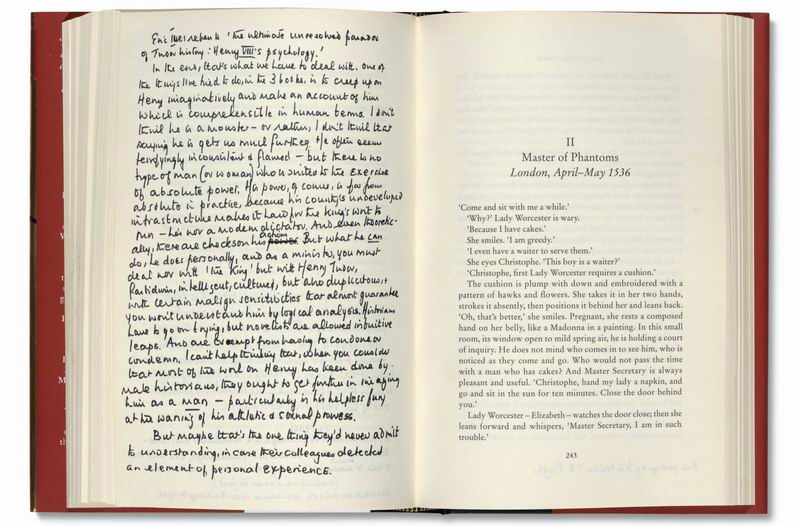 Eric Ives speaks of 'the ultimate unresolved paradox
of Tudor history: Henry VIII's psychology.'
In the end, that's what we have to deal with. One of
the things I've tried to do, in the 3 books, is to creep upon
Henry imaginatively and make an account of him
which is comprehensible in human terms. I don't
think he is a monster – or rather, I don't think that
saying he is gets us much further. He often seems
terrifyingly inconsistent & flawed – but there is no
type of man (or woman) who is suited to the exercise
of absolute power. His power, of course, is far from
absolute in practice, because his country's undeveloped
infrastructure makes it hard for the King's writ to
run – he's not a modern dictator. And even theoretic-
ally, there are checks on his actions. But what he can
do, he does personally, and as a minister, you must
deal not with 'the King' but with Henry Tudor,
intelligent, cultured, but also duplicitous, &
with certain malign sensitivities that almost guarantee
you won't understand him by logical analysis. Historians
have to go on trying, but novelists are allowed intuitive
leaps. And are exempt from having to condone or
condemn. I can't help thinking that, when you consider
that most of the work on Henry has been done by
male historians, they ought to get further in imagining
him as a man – particularly in his helpless fury
at the waning of his athletic & sexual prowess.
But maybe that's the one thing they'd never admit
to understanding, in case their colleagues detected
an element of personal experience.
II
Master of Phantoms
London, April–May 1536
'Come and sit with me a while.'
'Why?' Lady Worcester is wary.
'Because I have cakes.'
She smiles. 'I am greedy.'
'I even have a waiter to serve them.'
She eyes Christophe. 'This boy is a waiter?'
'Christophe, first Lady Worcester requires a cushion.'
The cushion is plump with down and embroidered with a
pattern of hawks and flowers. She takes it in her two hands,
strokes it absently, then positions it behind her and leans back.
'Oh, that's better,' she smiles. Pregnant, she rests a composed
hand on her belly, like a Madonna in a painting. In this small
room, its window open to mild spring air, he is holding a court
of inquiry. He does not mind who comes in to see him, who is
noticed as they come and go. Who would not pass the time
with a man who has cakes? And Master Secretary is always
pleasant and useful. 'Christophe, hand my lady a napkin, and
go and sit in the sun for ten minutes. Close the door behind
you.'
Lady Worcester – Elizabeth – watches the door close; then she
leans forward and whispers, 'Master Secretary, I am in such
trouble.'
243